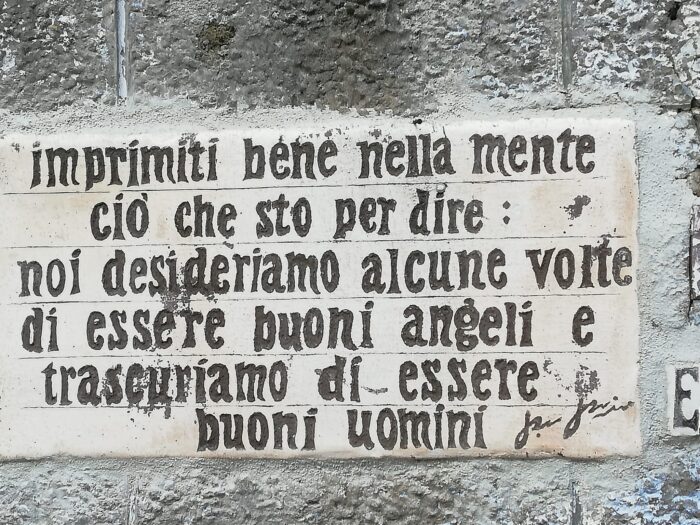 imprimiti bene nella mente
ciò che sto per dire :
noi desideriamo alcune volte
di essere buoni angeli e
trascuriamo di essere
buoni uomini
E